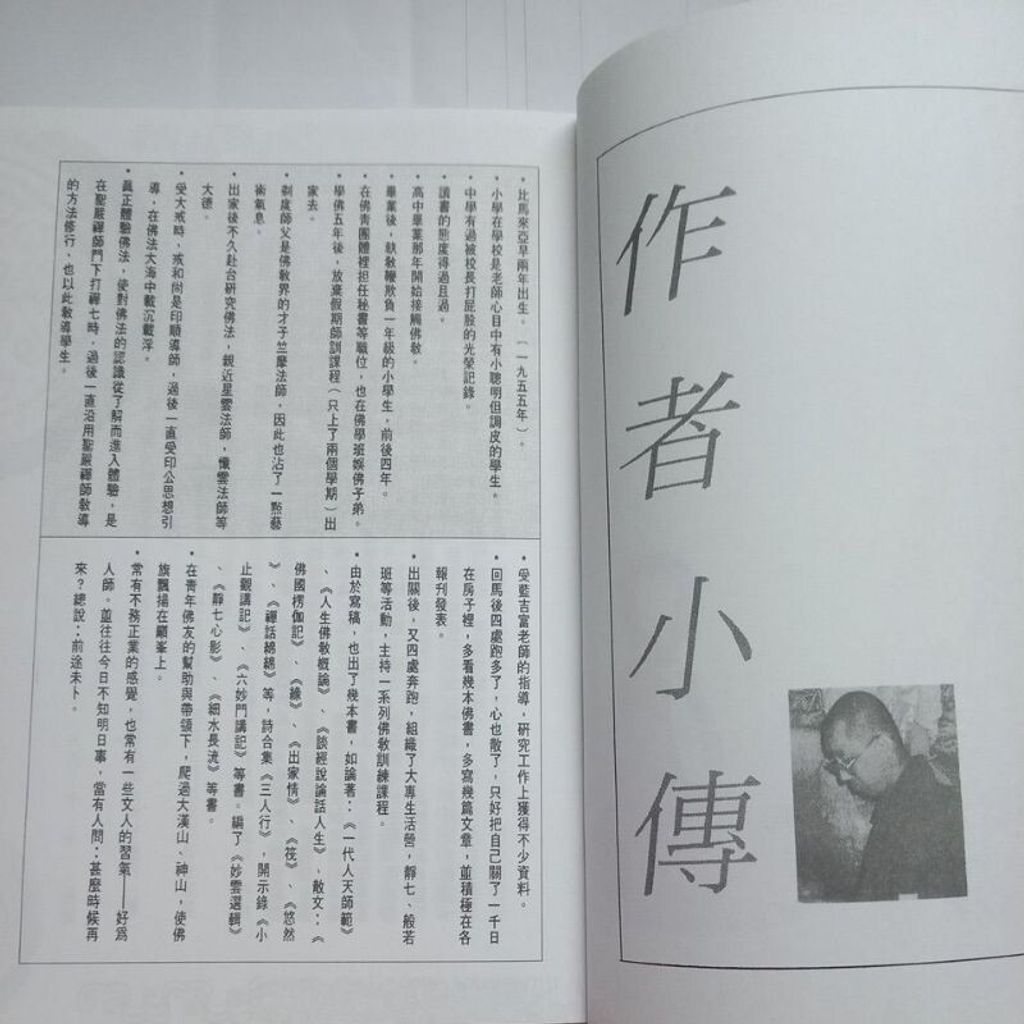 作者小傳
•比馬來亞早兩年出生。(一九五五年)。
•小學在學校是老師心目中有小聰明但調皮的學生。
•中學有過被校長打屁股的光榮記錄。
•讀書的態度得過且過。
•高中畢業那年開始接觸佛教。
•畢業後，執教鞭欺負一年級的小學生，前後四年。
•在佛青團體裡担任秘書等職位，也在佛學班娛佛子弟。
•學佛五年後，放棄假期師訓課程(只上了兩個學期)出
家去。
•剃度師父是佛教界的才子竺摩法師，因此也沾了一點藝
術氣息。
•出家後不久赴台研究佛法，親近星雲法師，懺雲法師等
大德。
•受大戒時，戒和尚是印順導師，過後一直受印公思想引
導，在佛法大海中載沉載浮。
•真正體驗佛法，使對佛法的認識從了解而進入體驗，是
在聖嚴禪師門下打禪七時，過後一直沿用聖嚴禪師教導
的方法修行，也以此教導學生。
•受藍吉富老師的指導，研究工作上獲得不少資料。
•回馬後四處跑多了，心也散了，只好把自己關了一千日
在房子裡，多看幾本佛書，多寫幾篇文章，並積極在各
報刊發表。
•出關後，又四處奔跑，組織了大專生活營，靜七、般若
班等活動，主持一系列佛教訓練課程。
•由於寫稿，也出了幾本書，如論著：《一代人天師範》
、《人生佛教概論》、《談經說論話人生》，散文：《
佛國楞伽記》、《緣》、《出家情》、《筏》、《悠然
》、《禪話綿綿》等，詩合集《三人行》，開示錄《小
止觀講記》、《六妙門講記》等書。編了《妙雲選輯》
、《靜七心影》、《細水長流》等書。
•在青年佛友的幫助與帶領下，爬過大漢山、神山，使佛
旗飄揚在巔峯上。
•常有不務正業的感覺，也常有一些文人的習氣——好為
人師。並往往今日不知明日事，當有人問：甚麼時候再
來？總說：前途未卜。